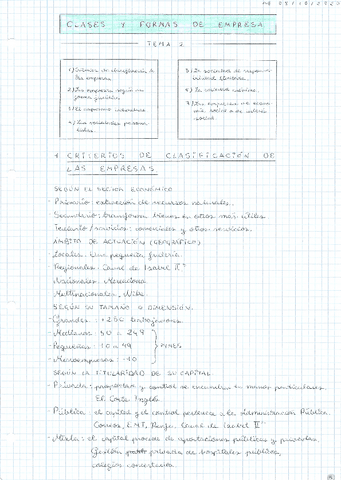 CLASES Y FORMAS DE EMPRESA
TEMA 2
1) Criterios de clasificación de
las empresas
2) Las empresas según su
forma jurídica
3) El empresario individual
4) Las sociedades persona-
listas.
5) La sociedad de respon-
sabilidad limitada.
6) La sociedad anónima.
7) Las empresas de
social
1 CRITERIOS DE CLASIFICACIÓN DE
LAS EMPRESAS
SEGÚN EL SECTOR ECONÓMICO
- Primario: extracción de recursos naturales.
- Secundario: transforma bienes en otros más útiles.
- Terciario/servicios: comerciales y otros servicios.
ÁMBITO DE ACTUACIÓN (GEOGRÁFICO)
- Locales: Una pequeña frutería.
- Regionales: Canal de Isabel II
- Nacionales: Mercadona
- Multinacionales: Nike.
SEGÚN SU TAMAÑO O DIMENSIÓN.
- Grandes: +250 trabajadores
- Medianas: 50 a 249
- Pequeñas: 10 a 49 } PYMES
- Microempresas: -10
SEGÚN LA TITULARIDAD DE SU CAPITAL
- Privada: propiedad y control se encuentra en manos particulares.
El Corte Inglés
- Pública: el capital y el control pertenece a la Administración Pública.
Correos, E.M.T, Renfe, Canal de Isabel II
- Mixta: el capital procede de aportaciones públicas y privadas.
Gestión privada de hospitales públicos,
colegios concertados.